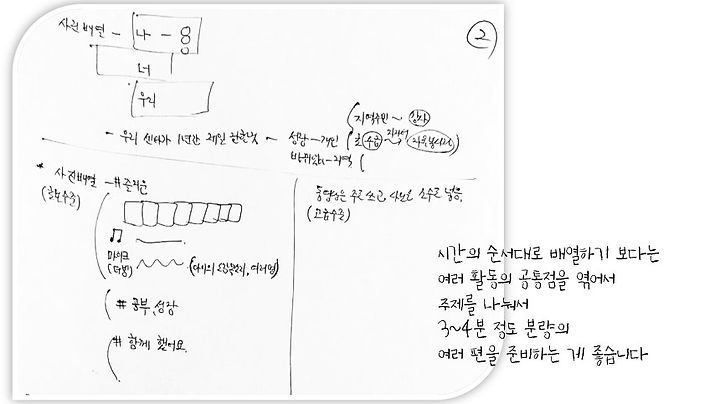 ②
사진 배열 - 나 - 8
너
우리
- 우리 센터가 1년간 제일 잘한 것 - 성장 - 개인
바뀌었다 - 지역
지역주민 ~ 강사
초 수급 자원봉사자
* 사진배열 - # 즐거운
(초보수준)
♫
마이크
(더빙)
# 공부, 성장
# 함께 했어요.
동영상은 주로 쓰고, 사진은 소수로 넣음.
(고급수준)
시간의 순서대로 배열하기 보다는
여러 활동의 공통점을 엮어서
주제를 나눠서
3~4분 정도 분량의
여러 편을 준비하는 게 좋습니다